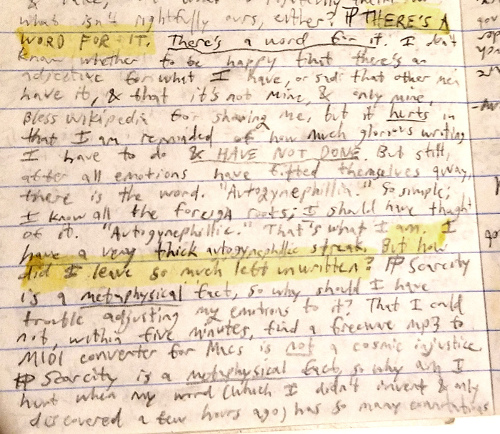 what isn't rightfully ours, either? ¶ THERE'S A
WORD FOR IT. There's a word for it. I don't
know whether to be happy that there's an
adjective for what I have, or sad that other men
have it, & that it's not mine, & only mine,
Bless wikipedia for showing me, but it hurts in
that I am reminded of how much glorious writing
I have to do & HAVE NOT DONE. But still,
after all emotions have sifted themselves away,
there is the word. "Autogynephillia." So simple;
I know all the foreign roots; I should have thaght
of it. "Autogynephillic." That's what I am. I
have a very thick autogynephillic streak. But how
did I leave so much left unwritten? ¶ Scarcity
is a metaphysical fact, so why should I have
trouble adjusting my emotions to it? That I could
not, within five minutes, find a freeware mp3 to
MIDI converter for Macs is not a cosmic injustice.
¶ Scarcity is a metaphysical fact, so why am I
hurt when my word (which I didn't invent & only
discovered a few hours ago) has so many connotations